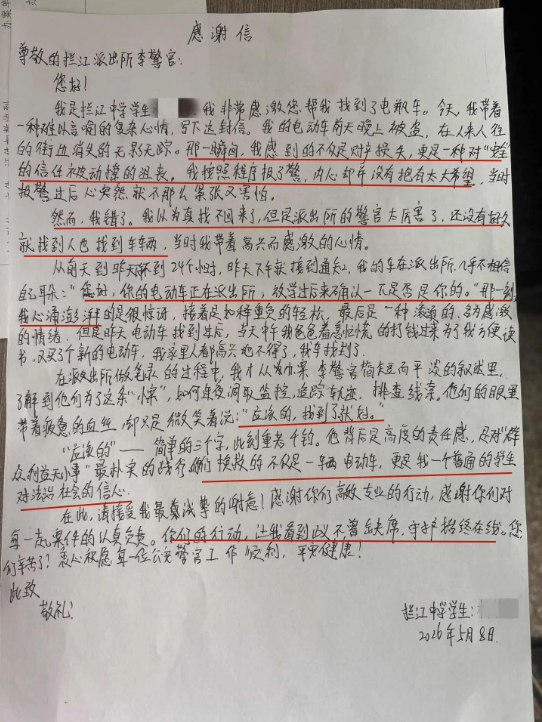 感谢信
尊敬的拦江派出所李警官:
您好!
我是拦江中学学生 我非常感激您帮我找到了电瓶车。今天,我带着
一种难以言喻的复杂心情,写下这封信。我的电动车前天晚上被盗,在人来人往
的街边消失的无影无踪。那一瞬间,我感到的不仅是财产损失,更是一种对"安全"
的信任被动摇的沮丧。我按照程序报了警,内心却并没有抱有太大希望,当时
报警过后心突然就不那么紧张又害怕。
然而,我错了。我以为真找不回来了,但是派出所的警官太厉害了,还没有多久
就找到人也找到车车辆,当时我带着高兴而感激的心情。
从前天到昨天不到24个小时,昨天下午就接到通知,我的车在派出所,几乎不相信
自己耳朵:"您好,你的电动车正在派出所,放学过后来确认一下是否是你的。"那一刻
我心涌澎湃的是很惊讶,接着是如释重负的轻松,最后是一种滚烫的、名为感激
的情绪。但是昨天电动车找到过后,当天中午我爸爸着急忙慌的打钱过来为了我方便读
书,又买了个新的电动车,我家里人都高兴地不得了,我车找到了。
在派出所做笔录的过程中,我才从 李警官简短而平淡的叙述里,
了解到他们为了这条"小案",如何连夜调取监控,追踪轨迹,排查线索,他们的眼里
带着疲惫的血丝,却只是微笑着说:"应该的,找到了就好。"
"应该的"——简简单的三个字,此刻重若千钧。它背后是高度的责任感,是对"群
众利益无小事"最朴实的践行,你们挽救的不仅是一辆电动车,更是我一个普通的学生
对法治社会的信心。
在此,请接受我最真诚挚的谢意!感谢你们高效专业的行动,感谢你们对
每一起案件的认真负责。你们的行动,让我看到正义不曾缺席,守护始终在线。您
们辛苦了!衷心祝愿每一位公安警官工作顺利,平安健康!
此致
敬礼!
拦江中学学生:
2026年5月8日